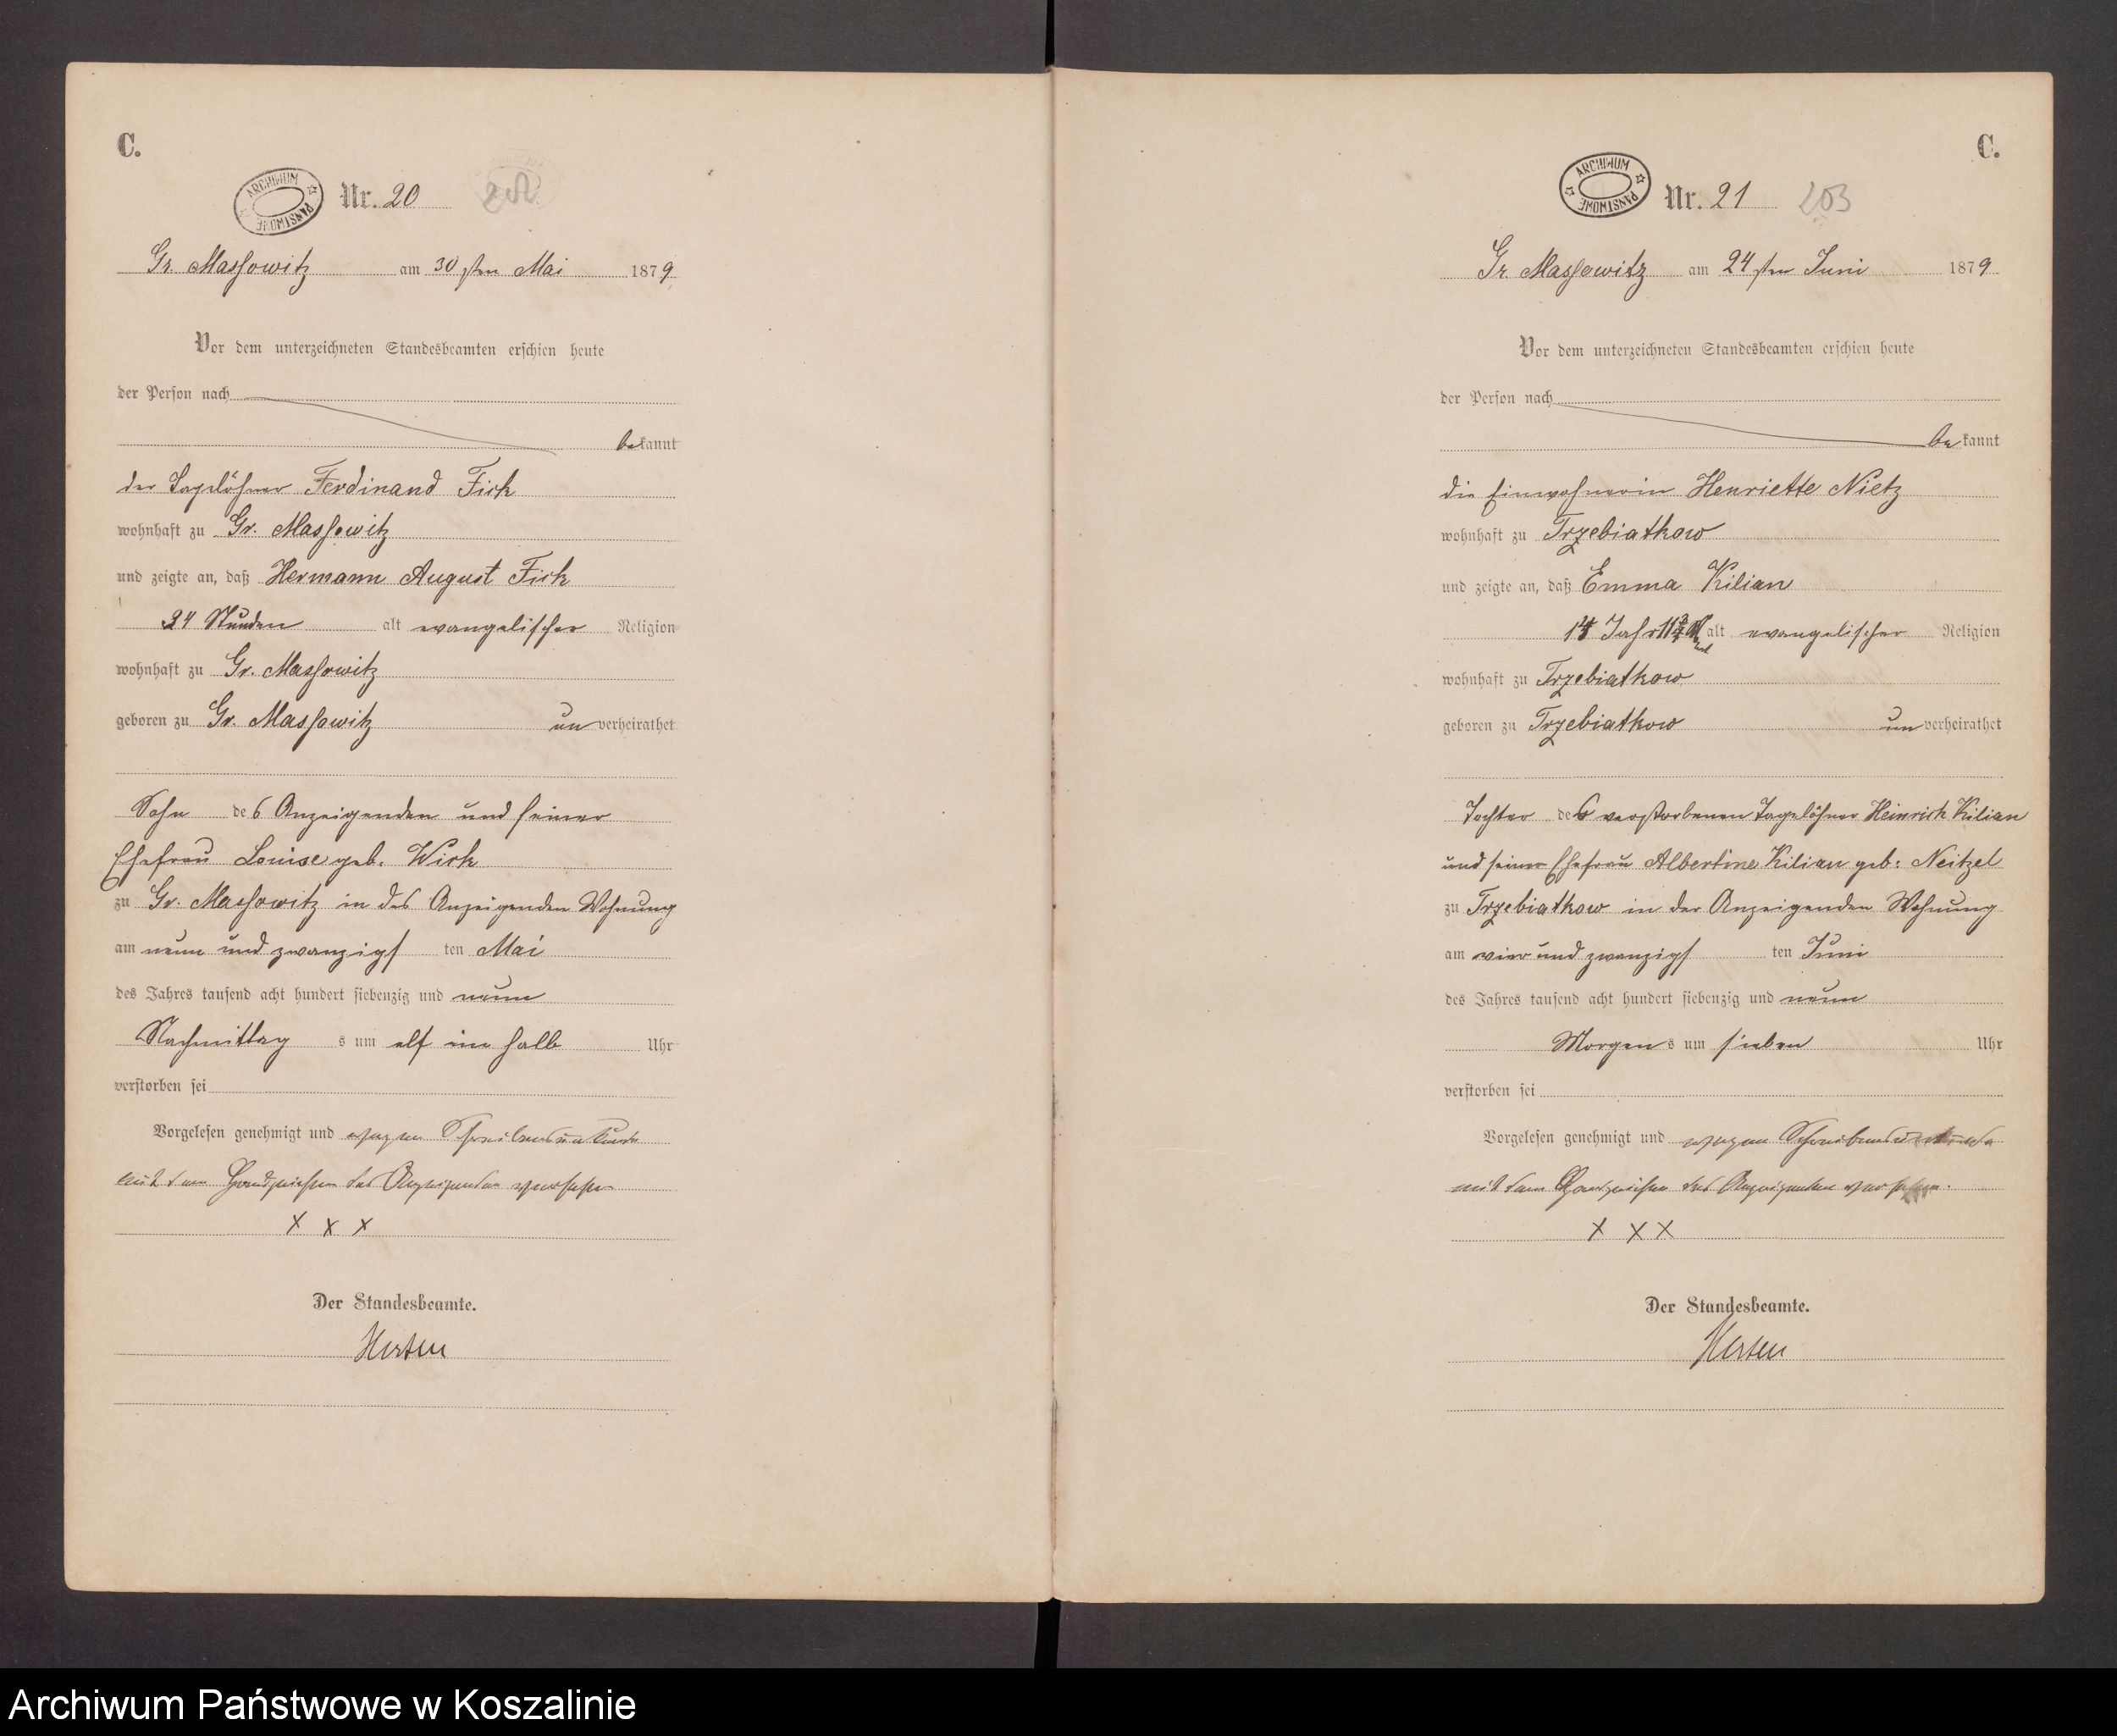 C.
ARCHIWUM PAŃSTWOWE
Nr. 20
Gr. Massowitz am 30sten Mai 1879
Vor dem unterzeichneten Standesbeamten erschien heute
der Person nach
bekannt
der Tagelöhner Ferdinand Fick
wohnhaft zu Gr. Massowitz
und zeigte an, daß Hermann August Fick
24 Stunden alt evangelischer Religion
wohnhaft zu Gr. Massowitz
geboren zu Gr. Massowitz unverheirathet
Sohn des Anzeigenden und seiner
Ehefrau Louise geb. Wick
zu Gr. Massowitz in des Anzeigenden Wohnung
am neun und zwanzigsten Mai
des Jahres tausend acht hundert siebenzig und neun
Nachmittags um elf ein halb Uhr
verstorben sei
Vorgelesen genehmigt und wegen Schreibensunkunde
mit dem Handzeichen des Anzeigenden versehen
x x x
Der Standesbeamte.
Hersten
C.
ARCHIWUM PAŃSTWOWE
Nr. 21 203
Gr. Massowitz am 24sten Juni 1879
Vor dem unterzeichneten Standesbeamten erschien heute
der Person nach
bekannt
die Einwohnerin Henriette Nietz
wohnhaft zu Trzebiatkow
und zeigte an, daß Emma Kilian
Jahr alt evangelischer Religion
wohnhaft zu Trzebiatkow
geboren zu Trzebiatkow unverheirathet
Tochter des verstorbenen Tagelöhner Heinrich Kilian
und seiner Ehefrau Albertine Kilian geb: Neitzel
zu Trzebiatkow in der Anzeigenden Wohnung
am vier und zwanzigsten Juni
des Jahres tausend acht hundert siebenzig und neun
Morgens um sieben Uhr
verstorben sei
Vorgelesen genehmigt und wegen Schreibensunkunde
mit dem Handzeichen des Anzeigenden versehen.
x x x
Der Standesbeamte.
Hersten
Archiwum Państwowe w Koszalinie